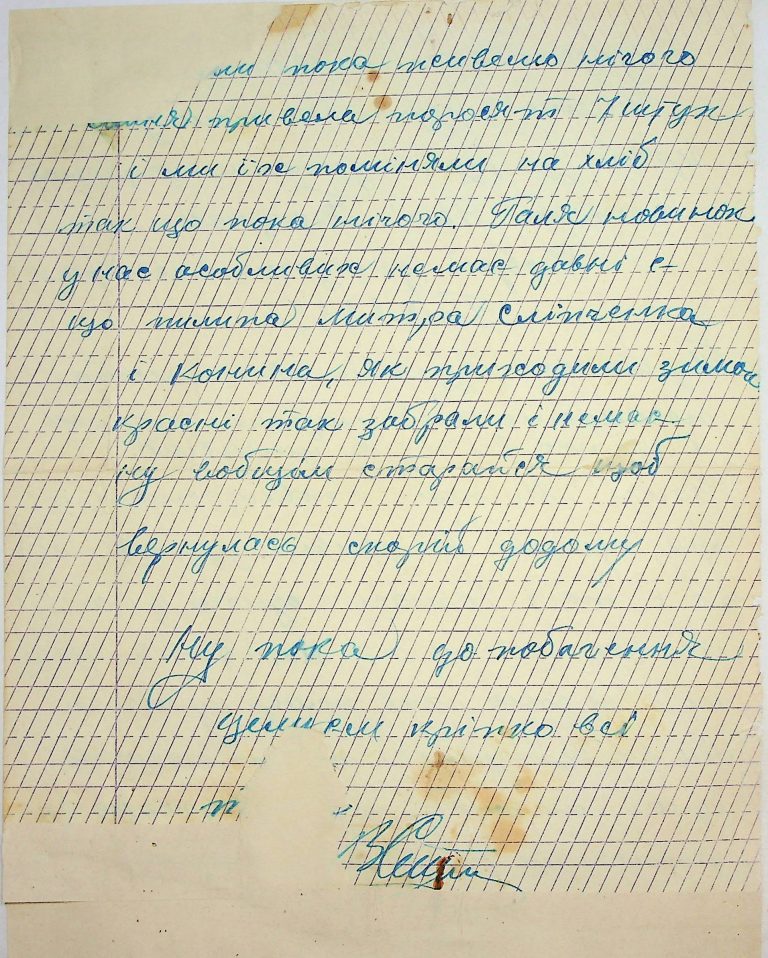 ми пока живемо нічого
привела поросят 7 штук
і ми їх поміняли на хліб
так що пока нічого. Галя новинок
у нас особливих немає давні є
що пилипа митра Сліпченка
і Конина, як приходили зимою
красні так забрали і немає
ну вобщім старайся щоб
вернулась скоріб додому
Ну пока до побачення
целуєм кріпко всі